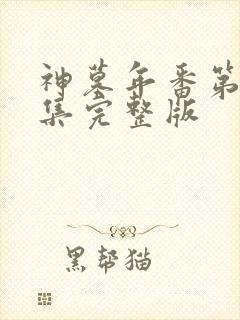 神墓年番第
集完整版
黑帮猫